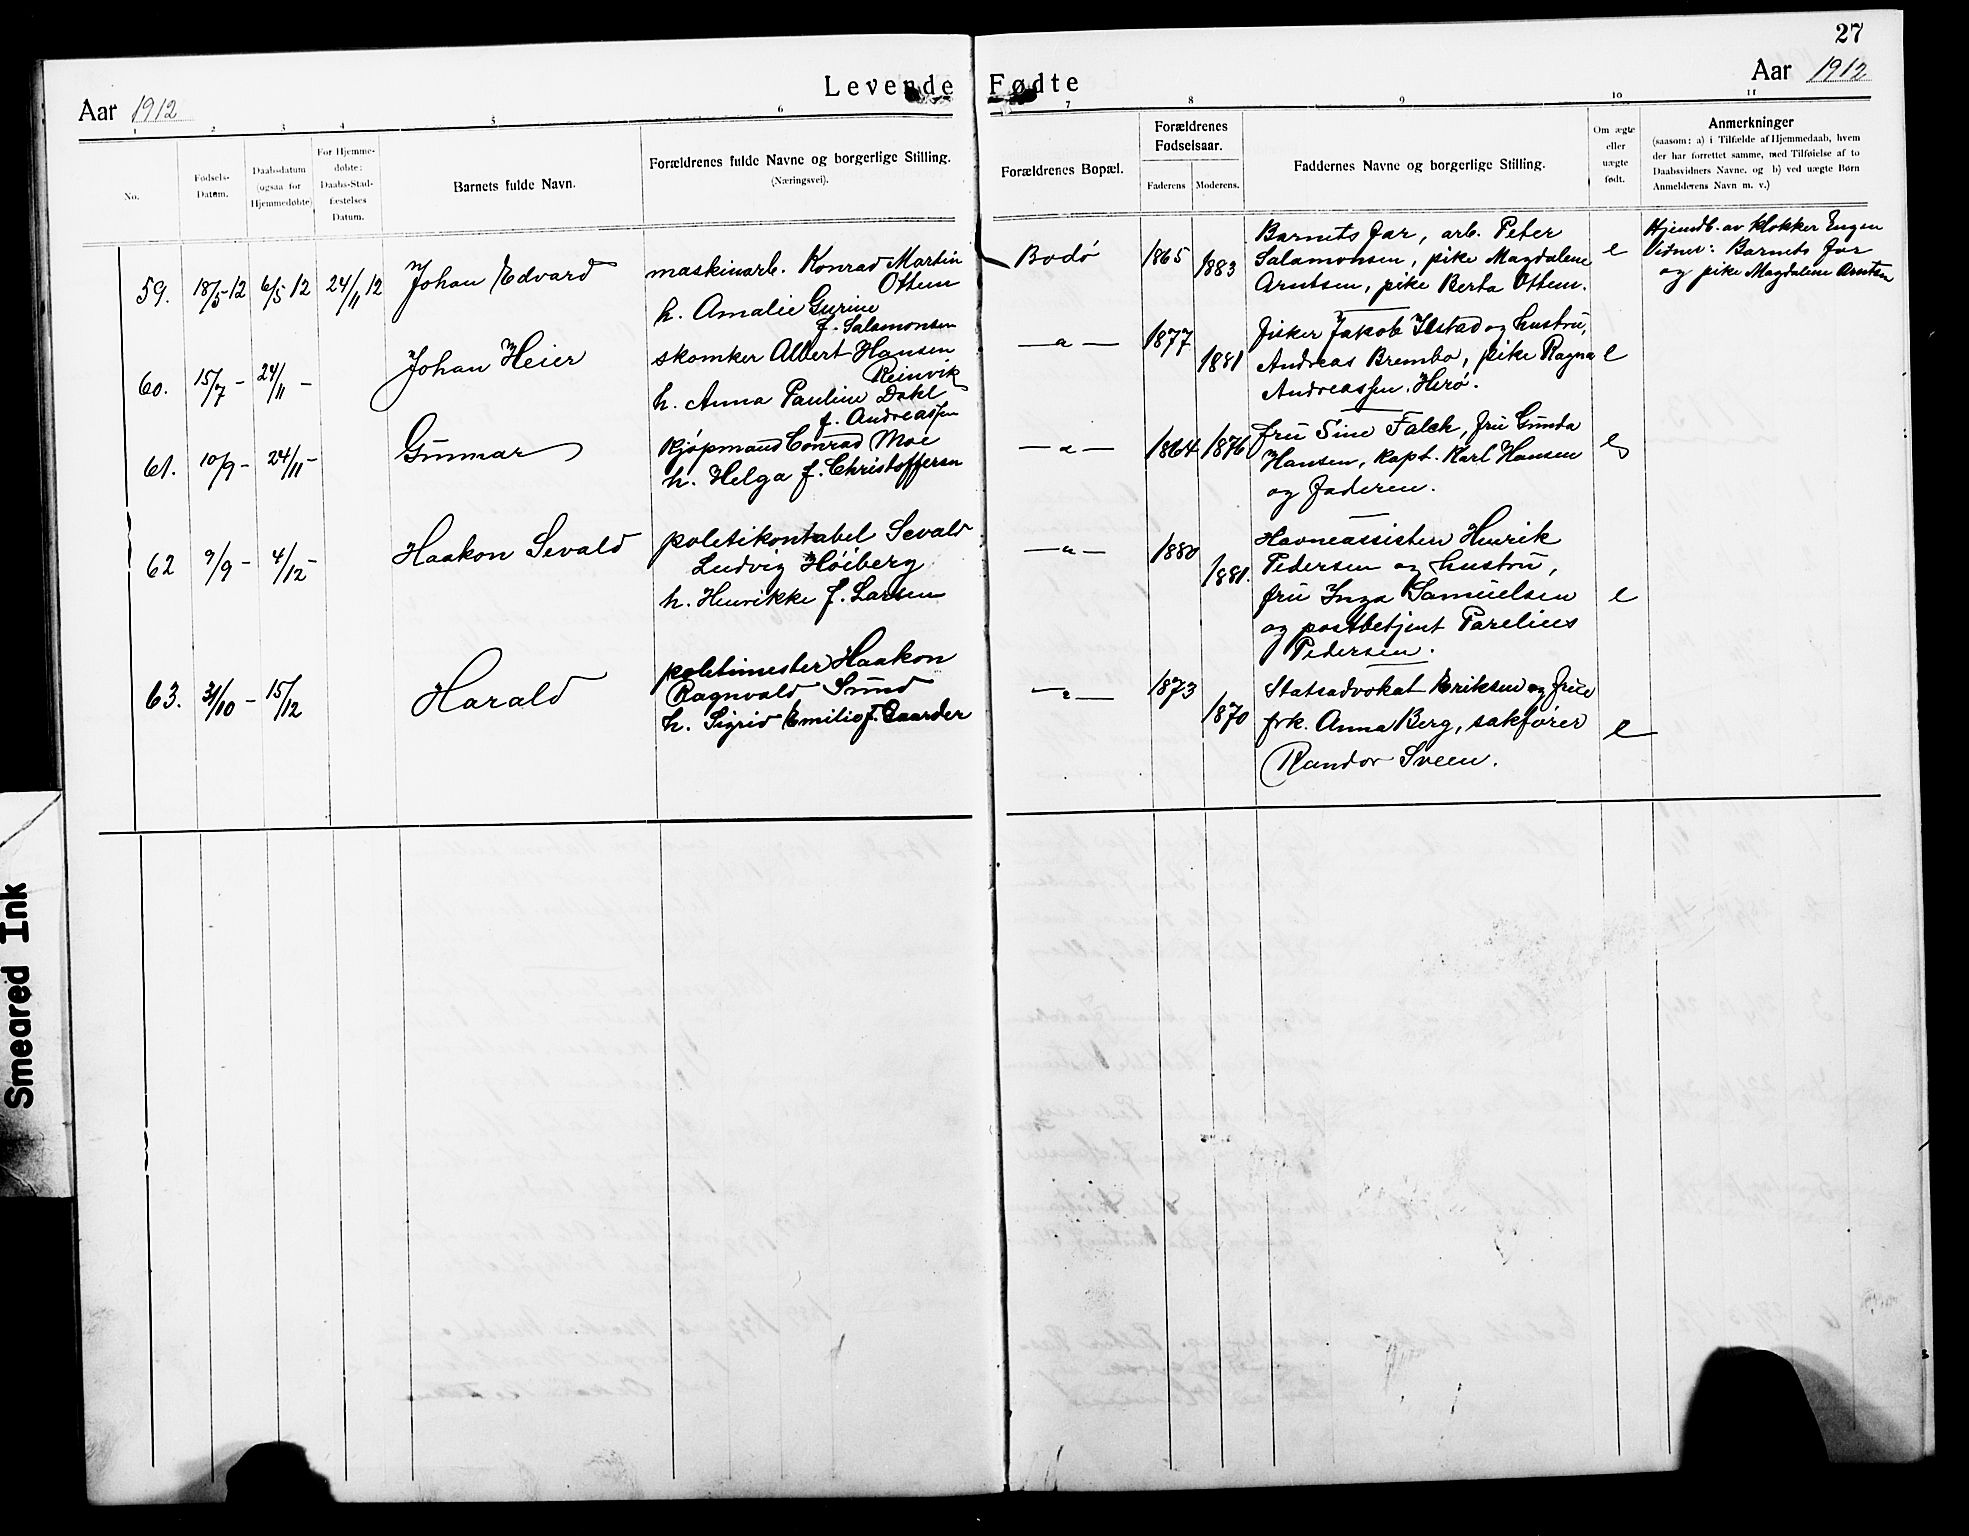 27
Levende Fødte
Aar 1912
Aar 1912
1 2 3 4 5 6 7 8 9 10 11
No.
Fødsels-
Datum.
Daabsdatum
(ogsaa for
Hjemmedøbte)
For Hjemme-
døbte:
Daabs-Stad-
fæstelses
Datum.
Barnets fulde Navn.
Forældrenes fulde Navne og borgerlige Stilling.
(Næringsvei).
Forældrenes Bopæl.
Forældrenes
Fødselsaar.
Faderens Moderens.
Faddernes Navne og borgerlige Stilling.
Om ægte
eller
uægte
født.
Anmerkninger
(saasom: a) i Tilfælde af Hjemmedaab, hvem
der har forrettet samme, med Tilføielse af to
Daabsvidners Navne, og b) ved uægte Børn
Anmelderens Navn m. v.)
59. 18/5-12 6/5 12 24/11 12 Johan Edvard
maskinarb. Konrad Martin
Ottem
h. Amalie Gurine
f. Salamonsen
Bodö 1865 1883
Barnets far, arb. Peter
Salamonsen, pike Magdalene
Arntsen, pike Berta Ottem.
e
Hjemdb. av klokker Engen
Vidner: Barnets far
og pike Magdalene Arntsen
60. 15/7 - 24/11 - Johan Heier
skomker Albert Hansen
Reinvik
h. Anna Pauline Dahl
f. Andreassen
— " — 1877 1881
fisker Jakob Ilstad og hustru,
Andreas Brembo, pike Ragna
Andreassen, Herø.
e
61. 10/9 - 24/11 - Gunnar
Kjøpmand Conrad Moe
h. Helga f. Christoffersen
— " — 1864 1876
fru Sine Falch, fru Gunda
Hansen, kapt. Karl Hansen
og faderen.
e
62 9/9 - 4/12 - Haakon Sevald
poletikontabel Sevald
Ludvig Höiberg
h. Henrikke f. Larsen
— " — 1880 1881.
Havneassisten Henrik
Pedersen og hustru,
fru Inga Samuelsen
og postbetjent Parelius
Pedersen.
e
63. 31/10 - 15/12 Harald
poletimester Haakon
Ragnvald Sund
h. Sigrid Emilie f. Gaarder
— " — 1873 1870
Statsadvokat Eriksen og frue
frk. Anna Berg, sakfører
Randor Sveen.
e
Smeared Ink